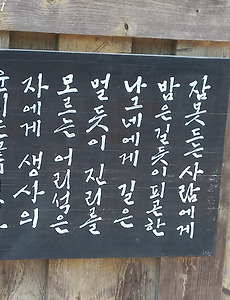 잠못드는 사람에게
밤은길듯이 피곤한
나그네에게 길은
멀듯이 진리를
모르는 어리석은
자에게 생사의